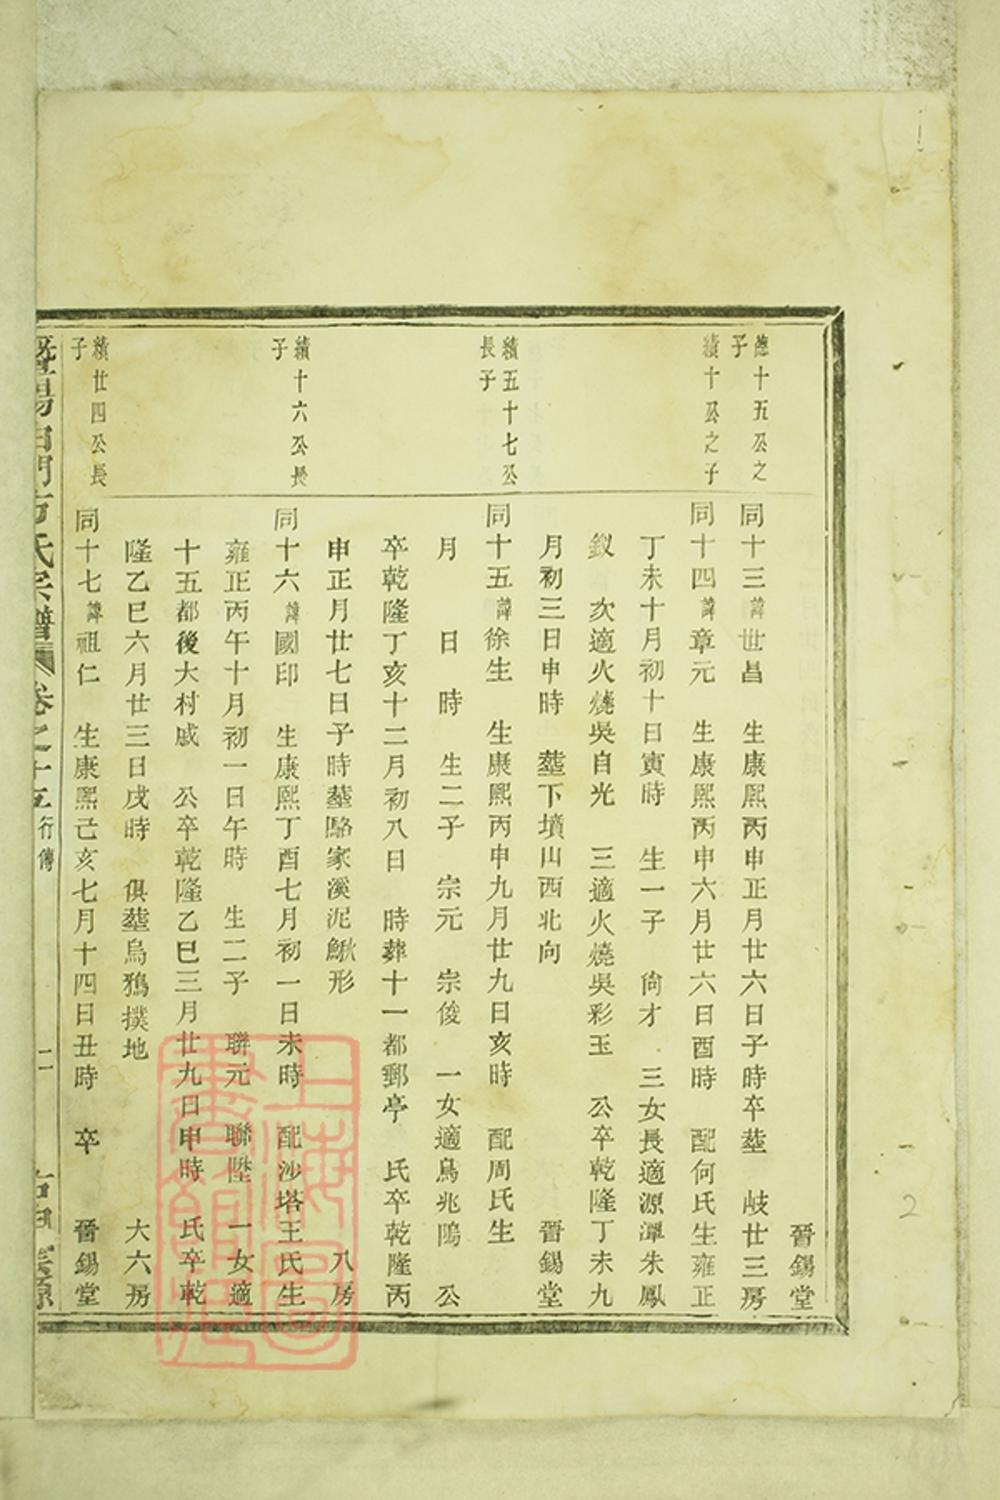 德十五公之
子
續十公之子
續五十七公
長子
續十六公長
子
續廿四公長
子
晉錫堂
同十三諱世昌 生康熙丙申正月廿六日子時卒塟 岐廿三房
同十四諱章元 生康熙丙申六月廿六日酉時 配何氏生雍正
丁未十月初十日寅時 生一子 尙才 三女長適源潭朱鳳
釵 次適火燒吳自光 三適火燒吳彩玉 公卒乾隆丁未九
月初三日申時 塟下墳山西北向 晉錫堂
同十五諱徐生 生康熙丙申九月廿九日亥時 配周氏生
月 日 時 生二子 宗元 宗俊 一女適烏兆鳴 公
卒乾隆丁亥十二月初八日 時葬十一都郵亭 氏卒乾隆丙
申正月廿七日子時塟駱家溪泥鰍形 八房
同十六諱國印 生康熙丁酉七月初一日未時 配沙塔王氏生
雍正丙午十月初一日午時 生二子 聯元 聯陞 一女適
十五都後大村戚 公卒乾隆乙巳三月廿九日申時 氏卒乾
隆乙巳六月廿三日戌時 俱塟烏鴉撲地 大六房
同十七諱祖仁 生康熙己亥七月十四日丑時 卒 晉錫堂
暨陽白門方氏宗譜 卷之十五 行傳 二
上海圖書館藏
2